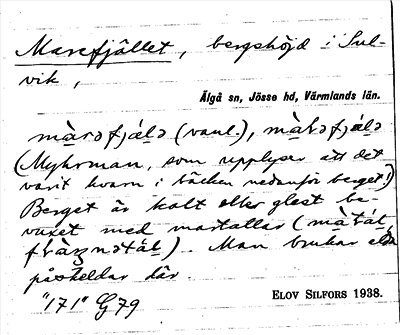 Marefjället, bergshöjd i Sul-
vik,
Älgå sn, Jösse hd, Värmlands län.
màrəfjálə (vanl.), màləfjálə
(Myhrman, som upplyser att det
varit kvarn i bäcken nedanför berget!)
Berget är kalt eller glest be-
vuxet med martallar (
). Man brukar
påskeldar där.
"171" G79
ELOV SILFORS 1938.